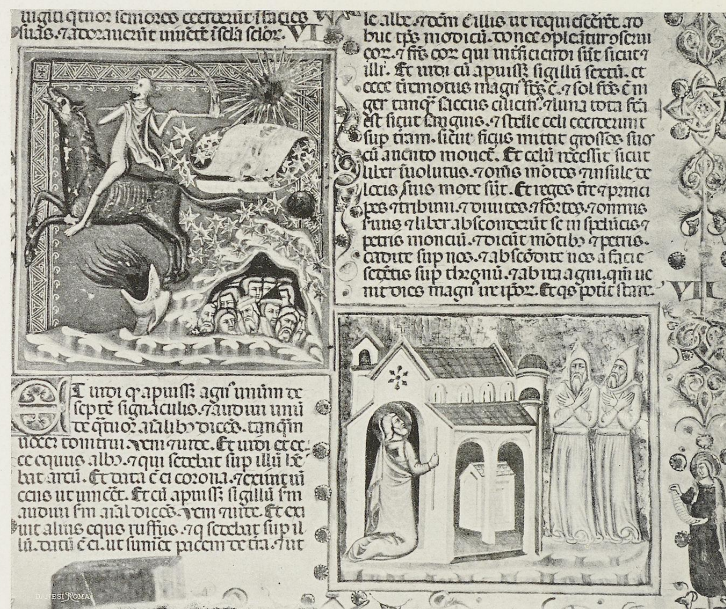 uigiti qtuor seniores ceciderunt i facies
suas. ⁊ adorauerūt uiuētē ī scla sclor. VI
Et uidi qd apuisset agn' unum de
septē signaculis. ⁊ audiui unū
de qtuor aīalibꝫ dicēs. tanqm
uocē tonitrui. veni ⁊ uide. Et uidi et ec
ce equus albꝰ. ⁊ qui sedebat sup illū hē
bat arcū. Et data ē ei corona. ⁊ exiuit uī
cens ut uīncēt. Et cū apuisset sigillū sm
audiui sm aīal dicēs. veni ⁊ uide. Et exi
uit alius equs ruffus. ⁊ q sedebat sup il
lū. datū ē ei. ut sumēt pacem de tra. ⁊ ut
le albe. ⁊ dcm ē illis ut requiescēret ad
huc tps modicū. donec opleantur serui
cor. ⁊ frēs cor qui īnficiendi sūt sicut ⁊
illi. Et uidi cū apuisset sigillū sextū. et
ecce tremotus magn' fcs ē. ⁊ sol fcs ē ni
ger tanq saccus cilicin'. ⁊ luna tota fcā
est sicut sanguis. ⁊ stelle celi ceciderunt
sup tram. sicut ficus mittit grossos suos
cū a uento mouet. Et celū recessit sicut
liber īuolutus. ⁊ omīs motes ⁊ insule de
locis suis mote sūt. Et reges tre ⁊ princi
pes ⁊ tribuni. ⁊ diuites ⁊ fortes. ⁊ omnis
suus ⁊ liber absconderūt se in spelūcis ⁊
petris monciū. ⁊ dicūt motibꝫ ⁊ petris.
cadite sup nos. ⁊ abscōdite nos a facie
sedētis sup thronū. ⁊ ab ira agni. qm ue
nit dies magn' ire ipor. Et qs potit stare
VII
DANESI ROMA